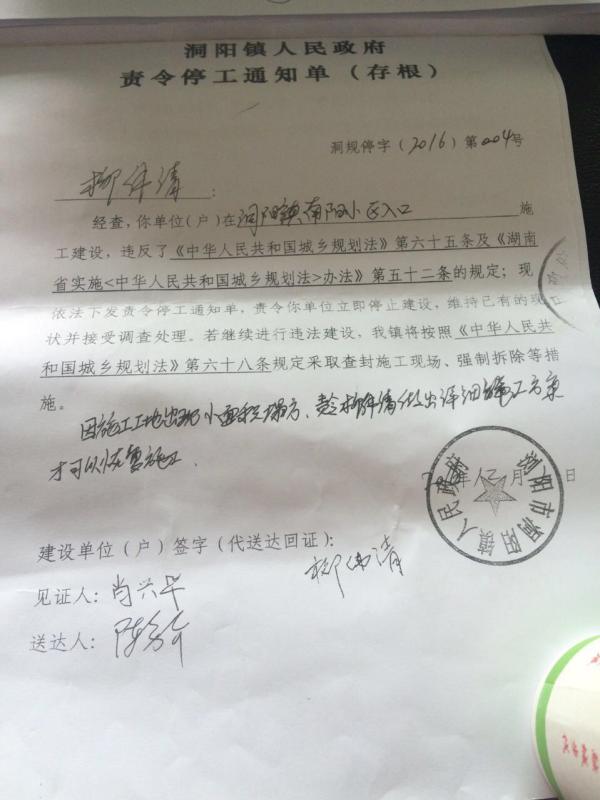 洞阳镇人民政府
责令停工通知单（存根）
洞规停字（2016）第004号
柳伟清：
经查，你单位（户）在洞阳镇南阳小区入口施
工建设，违反了《中华人民共和国城乡规划法》第六十五条及《湖南
省实施<中华人民共和国城乡规划法>办法》第五十二条的规定；现
依法下发责令停工通知单，责令你单位立即停止建设，维持已有的现
状并接受调查处理。若继续进行违法建设，我镇将按照《中华人民共
和国城乡规划法》第六十八条规定采取查封施工现场、强制拆除等措
施。
因施工工地出现小面积塌方、柳伟清做出详细施工方案
才可以恢复施工
年 月 日
浏阳市洞阳镇人民政府
建设单位（户）签字（代送达回证）：
柳伟清
见证人：肖兴华
送达人：陈